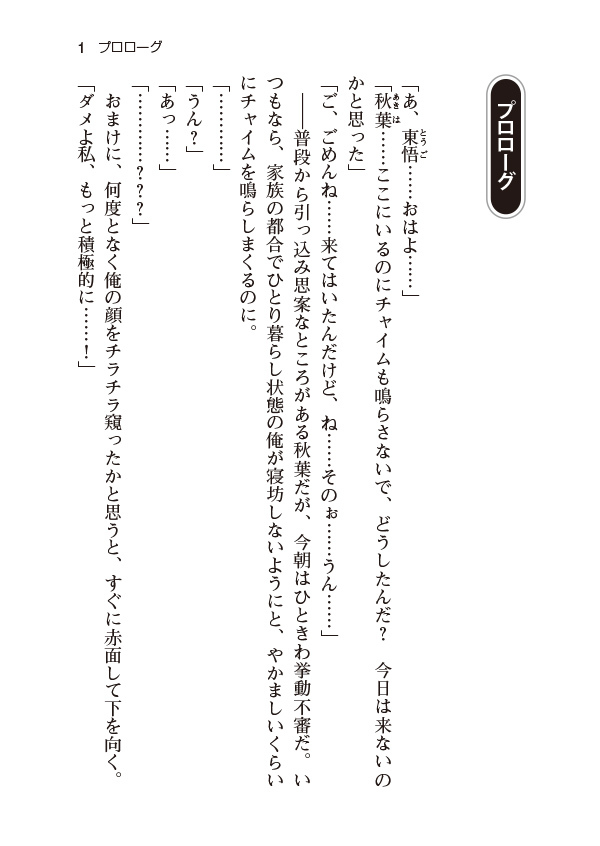 1　プロローグ
プロローグ
「あ、東悟……おはよ……」
とうご
「秋葉……ここにいるのにチャイムも鳴らさないで、どうしたんだ？　今日は来ないの
あきは
かと思った」
「ご、ごめんね……来てはいたんだけど、ね……そのぉ……うん……」
――普段から引っ込み思案なところがある秋葉だが、今朝はひときわ挙動不審だ。い
つもなら、家族の都合でひとり暮らし状態の俺が寝坊しないようにと、やかましいくらい
にチャイムを鳴らしまくるのに。
「…………」
「うん？」
「あっ……」
「…………？？？」
おまけに、何度となく俺の顔をチラチラ窺ったかと思うと、すぐに赤面して下を向く。
「ダメよ私、もっと積極的に……！」